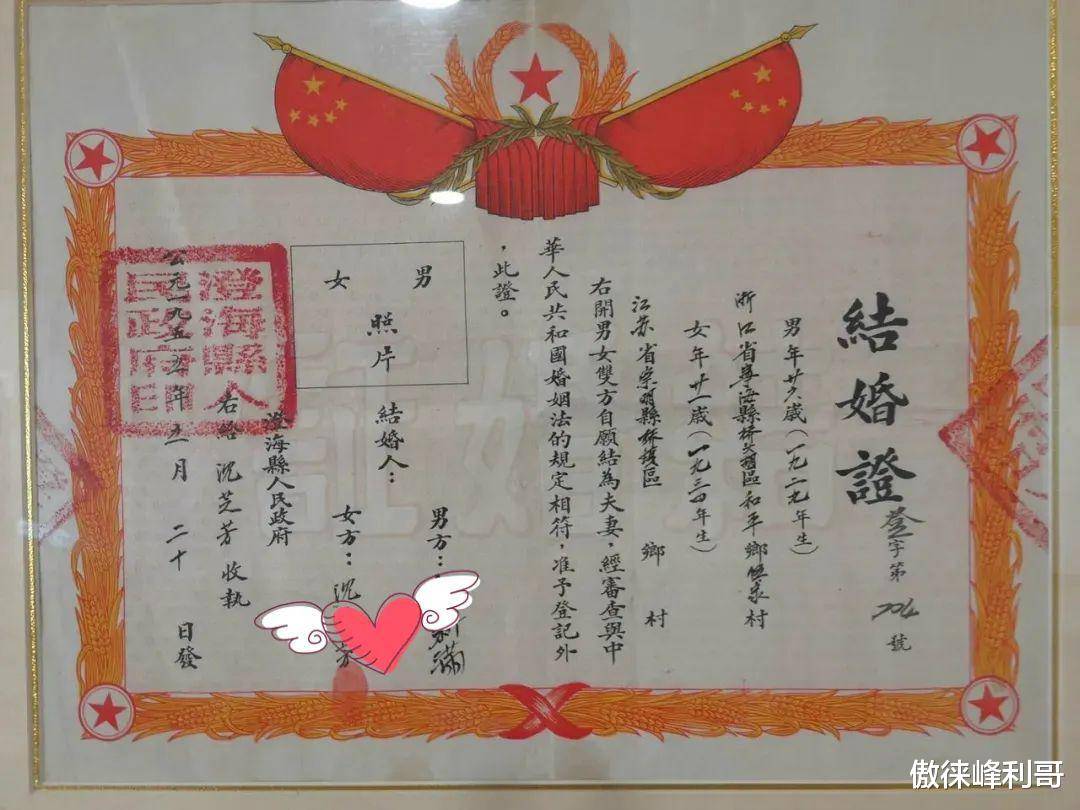 結婚證
登字第 號
男年廿六歲(一九二九年生)
浙江省寧海縣橋頭區和平鄉 村
女年廿一歲(一九三四年生)
江苏省崇明縣 區 鄉 村
右開男女雙方自願結為夫妻,經審查與中
華人民共和國婚姻法的規定相符,准予登記外
,此證。
男 女
照片
結婚人:
男方: 新滿
女方:沈 芳
澄海縣人民政府
右給 沈芝芳 收執
公元一九五五年 月二十日發
澄海縣人民政府印
結婚証
傲徕峰利哥